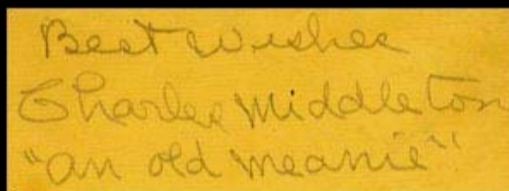 Best wishes
Charles Middleton
"an old meanie"